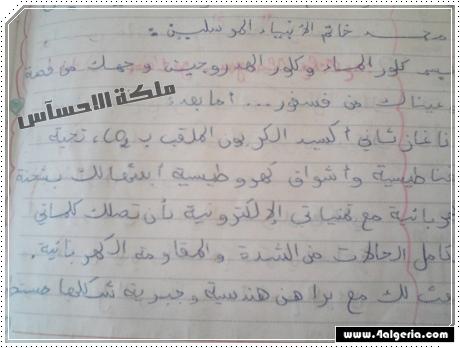 محمد خاتم الأنبياء المرسلين.
بسم كلور الماء وكلور الهيدروجين وجهك من فضة
عيناك من فسفور... أما بعد:
ملكة الاحساس
أنا غاز ثاني أكسيد الكربون الملقب ب CO2، تحية
مغناطيسية وأشواق كهروطيسية أبعثها لك بشحنة
كهربائية مع تمنياتي الإلكترونية بأن تصلك كلماتي
كامل الحالات من الشدة والمقاومة الكهربائية.
لك مع براهن هندسية وجبرية شكلها
www.4algeria.com